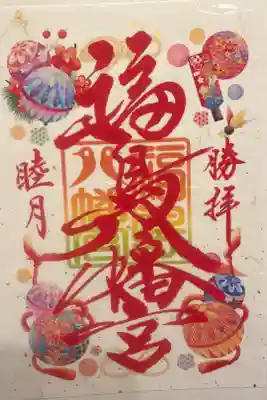 勝拝
福島八幡宮
睦月